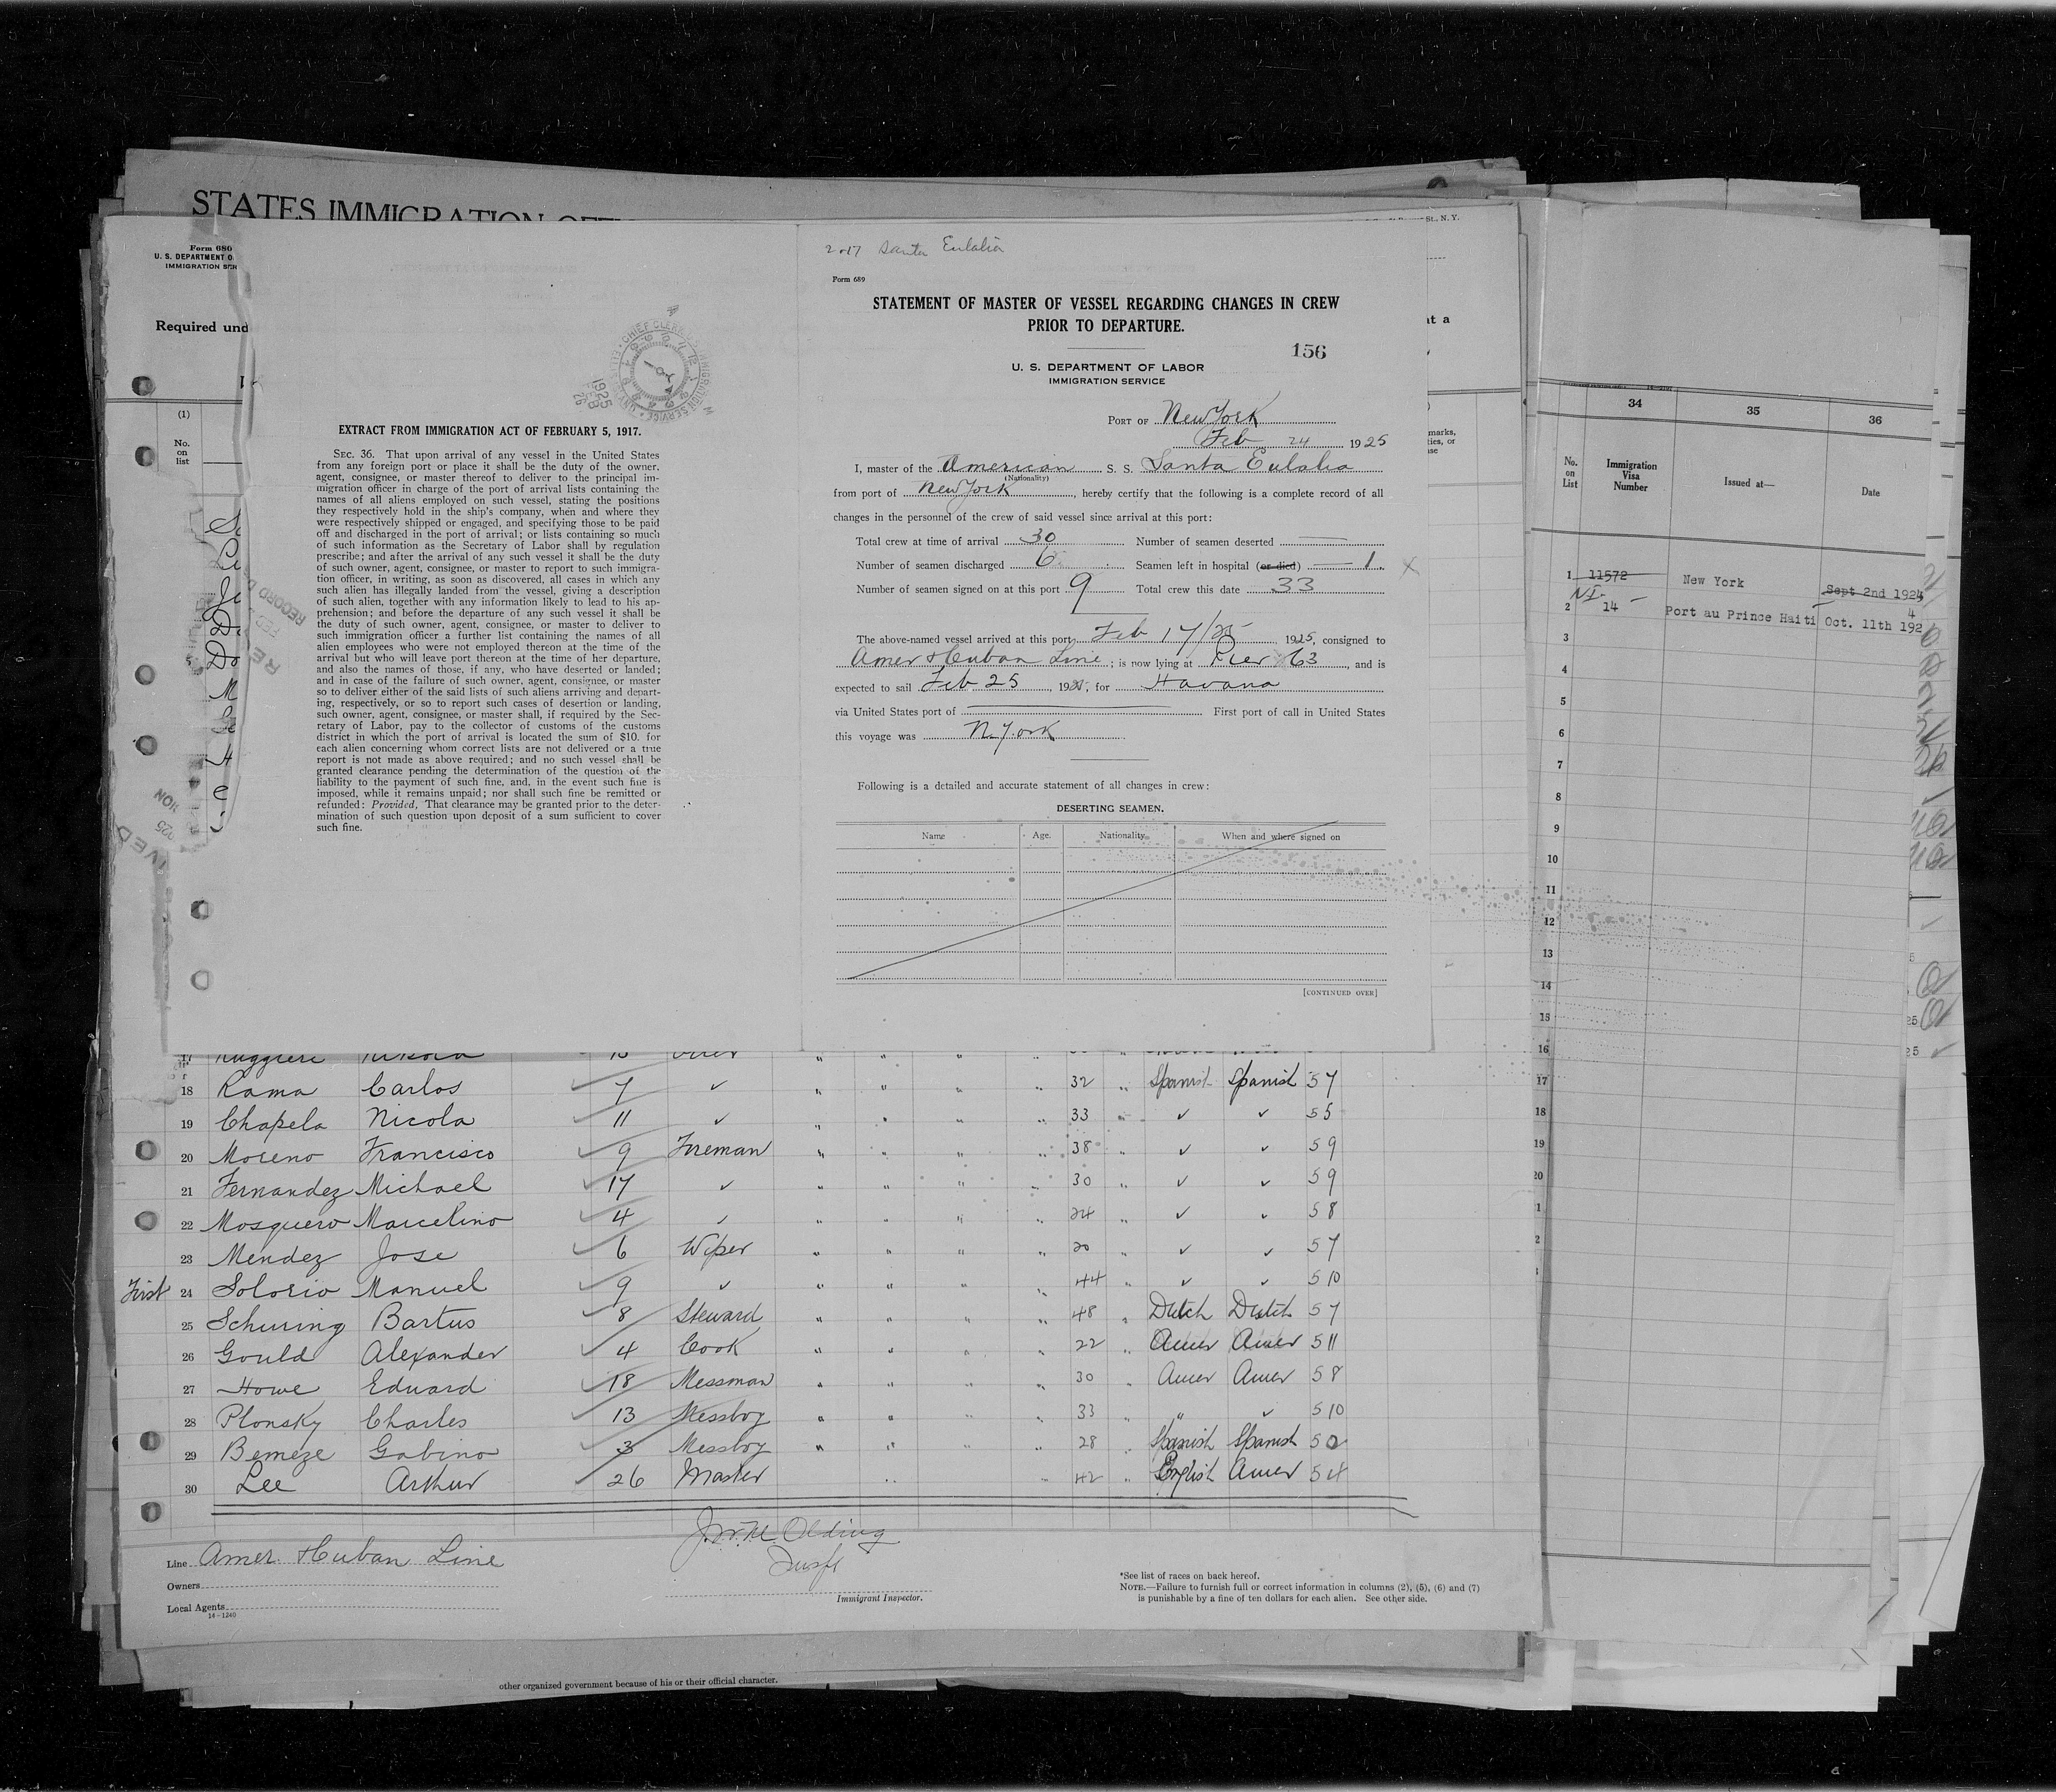 STATES IMMIGRATION
St. N. Y.
Form 680
U. S. DEPARTMENT O
IMMIGRATION SER
Required und
(1)
No.
on
list
1925
FEB
26
EXTRACT FROM IMMIGRATION ACT OF FEBRUARY 5, 1917.
SEC. 36. That upon arrival of any vessel in the United States
from any foreign port or place it shall be the duty of the owner,
agent, consignee, or master thereof to deliver to the principal im-
migration officer in charge of the port of arrival lists containing the
names of all aliens employed on such vessel, stating the positions
they respectively hold in the ship's company, when and where they
were respectively shipped or engaged, and specifying those to be paid
off and discharged in the port of arrival; or lists containing so much
of such information as the Secretary of Labor shall by regulation
prescribe; and after the arrival of any such vessel it shall be the duty
of such owner, agent, consignee, or master to report to such immigra-
tion officer, in writing, as soon as discovered, all cases in which any
such alien has illegally landed from the vessel, giving a description
of such alien, together with any information likely to lead to his ap-
prehension; and before the departure of any such vessel it shall be
the duty of such owner, agent, consignee, or master to deliver to
such immigration officer a further list containing the names of all
alien employees who were not employed thereon at the time of the
arrival but who will leave port thereon at the time of her departure,
and also the names of those, if any, who have deserted or landed;
and in case of the failure of such owner, agent, consignee, or master
so to deliver either of the said lists of such aliens arriving and depart-
ing, respectively, or so to report such cases of desertion or landing,
such owner, agent, consignee, or master shall, if required by the Sec-
retary of Labor, pay to the collector of customs of the customs
district in which the port of arrival is located the sum of $10. for
each alien concerning whom correct lists are not delivered or a true
report is not made as above required; and no such vessel shall be
granted clearance pending the determination of the question of the
liability to the payment of such fine, and, in the event such fine is
imposed, while it remains unpaid; nor shall such fine be remitted or
refunded: Provided, That clearance may be granted prior to the deter-
mination of such question upon deposit of a sum sufficient to cover
such fine.
Santa Eulalia
Form 689
STATEMENT OF MASTER OF VESSEL REGARDING CHANGES IN CREW
PRIOR TO DEPARTURE.
156
U. S. DEPARTMENT OF LABOR
IMMIGRATION SERVICE
PORT OF New York
Feb 24 1925
I, master of the American S. S. Santa Eulalia
(Nationality)
from port of New York, hereby certify that the following is a complete record of all
changes in the personnel of the crew of said vessel since arrival at this port:
Total crew at time of arrival 30 Number of seamen deserted —
Number of seamen discharged 6 Seamen left in hospital (or died) — 1. X
Number of seamen signed on at this port 9 Total crew this date 33
The above-named vessel arrived at this port Feb 17/25 1925, consigned to
Amer & Cuban Line; is now lying at Pier 63, and is
expected to sail Feb 25, 1925, for Havana
via United States port of — First port of call in United States
this voyage was N. York
Following is a detailed and accurate statement of all changes in crew:
DESERTING SEAMEN.
Name Age. Nationality When and where signed on
[CONTINUED OVER]
34 35 36
No. on List Immigration Visa Number Issued at— Date
1 11572 New York Sept 2nd 1924
2 N.I. 14 Port au Prince Haiti Oct. 11th 1924
3
4
5
6
7
8
9
10
11
12
13
14
15
16
17
18
19
20
17 Ruggieri
18 Rama Carlos 7 ✓ " " " " 32 " Spanish Spanish 5 7
19 Chapela Nicola 11 ✓ " " " " 33 " ✓ ✓ 5 5
20 Moreno Francisco 9 Fireman " " " " 38 " ✓ ✓ 5 9
21 Fernandez Michael 17 ✓ " " " " 30 " ✓ ✓ 5 9
22 Mosquero Marcelino 4 ✓ " " " " 24 " ✓ ✓ 5 8
23 Mendez Jose 6 Wiper " " " " 20 " ✓ ✓ 5 7
First 24 Solorio Manuel 9 ✓ " " " " 44 " ✓ ✓ 5 10
25 Schuring Bartus 8 Steward " " " " 48 " Dutch Dutch 5 7
26 Gould Alexander 4 Cook " " " " 22 " Amer Amer 5 11
27 Howe Eduard 18 Messman " " " " 30 " Amer Amer 5 8
28 Plonsky Charles 13 Messboy " " " " 33 " " ✓ 5 10
29 Bemeze Gabino 3 Messboy " " " " 28 " Spanish Spanish 5 2
30 Lee Arthur 26 Master " " 42 " English Amer 5 4
Line Amer & Cuban Line
Owners
Local Agents
14-1240
Immigrant Inspector.
*See list of races on back hereof.
NOTE.—Failure to furnish full or correct information in columns (2), (5), (6) and (7)
is punishable by a fine of ten dollars for each alien. See other side.
other organized government because of his or their official character.